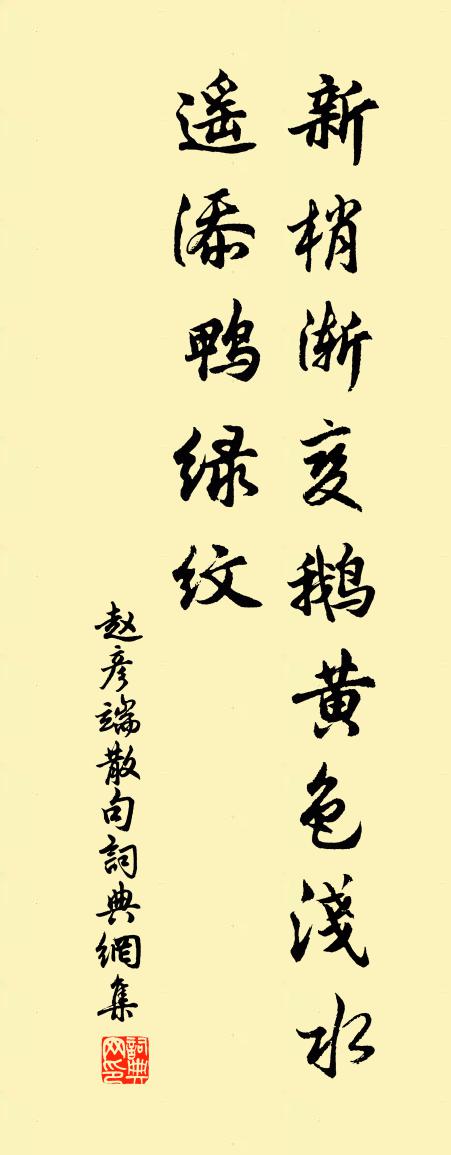 新梢渐变鹅黄色淺水
遥添鸭绿纹
赵彦端散句詞典網集
詞典网印